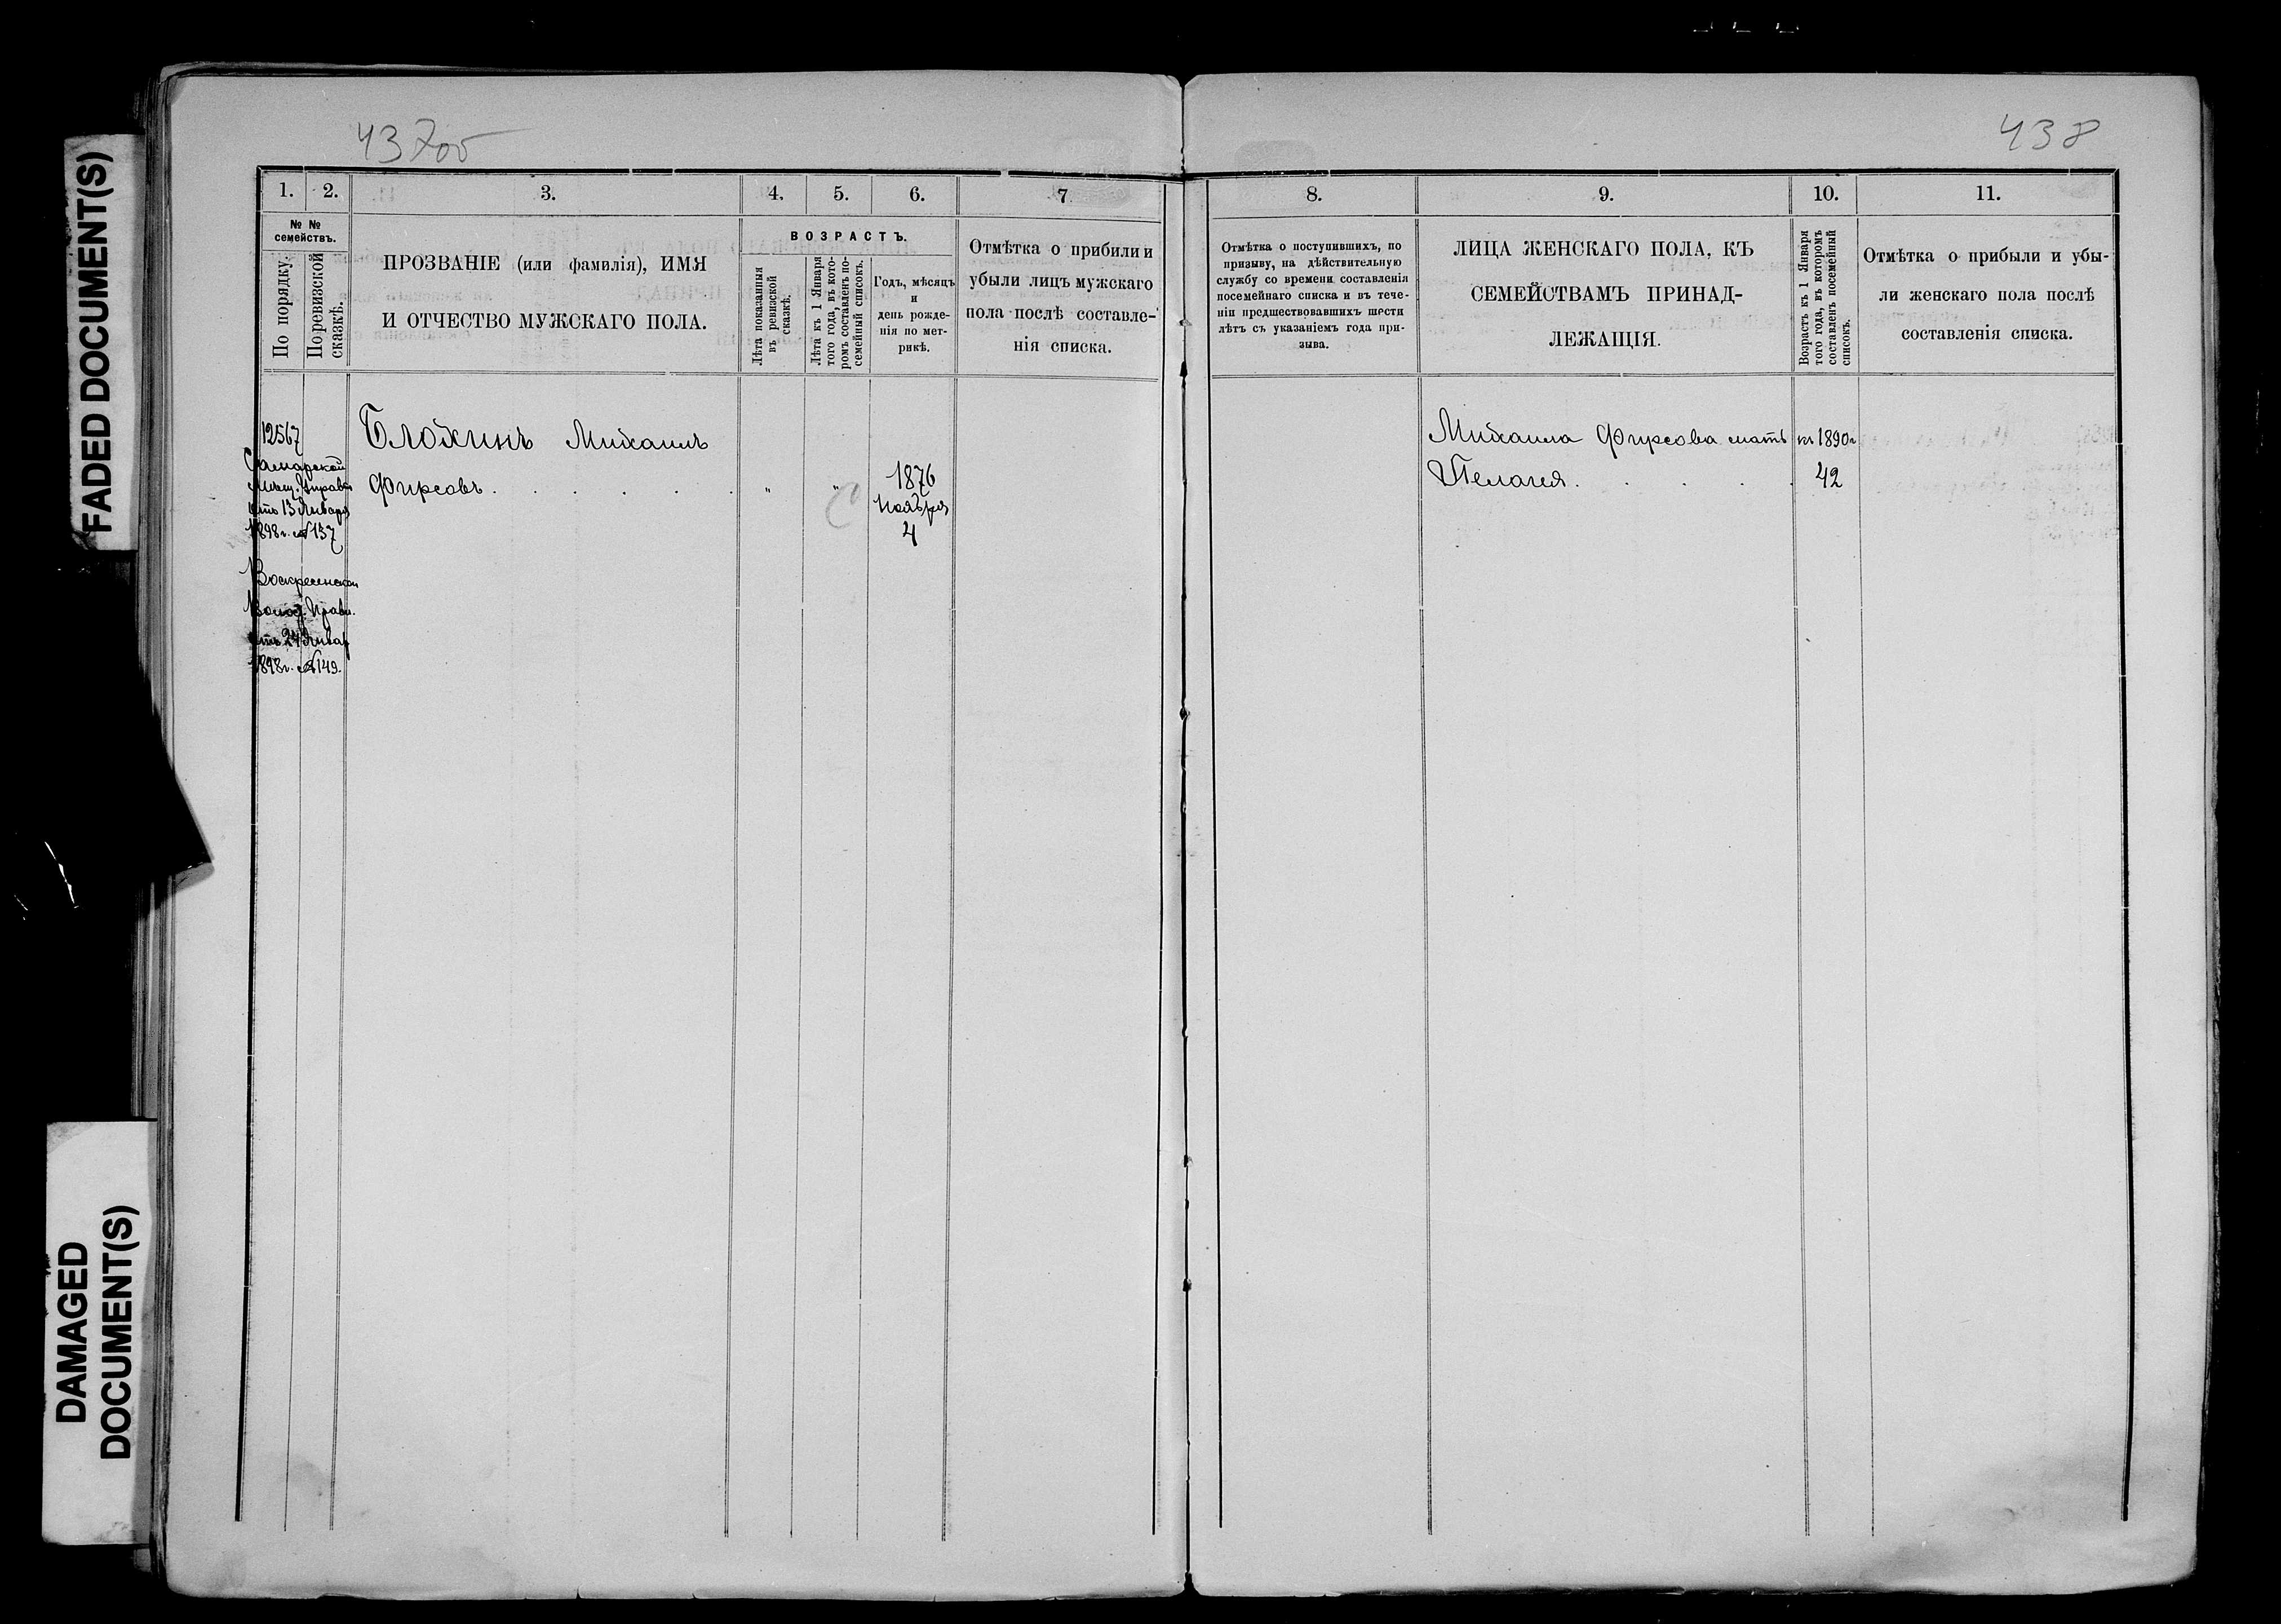 FADED DOCUMENT(S)
DAMAGED
DOCUMENT(S)
437об
1. 2. 3. 4. 5. 6. 7
№ №
семействъ.
По порядку.
По ревизской
сказкѣ.
ПРОЗВАНІЕ (или фамилія), ИМЯ
И ОТЧЕСТВО МУЖСКАГО ПОЛА.
ВОЗРАСТЪ.
Лѣта показанныя
въ ревизской
сказкѣ.
Лѣта къ 1 Января
того года, въ кото-
ромъ составленъ по-
семейный списокъ.
Годъ, мѣсяцъ
и
день рожде-
нія по мет-
рикѣ.
Отмѣтка о прибили и
убыли лицъ мужскаго
пола послѣ составле-
нія списка.
12567
Самарской
Мѣщ. Управы
отъ 13 Января
1898 г. № 137
Воскресенскаго
Волос. Правл.
отъ 24 Январ
1898 г. № 149.
Блохинъ Михаилъ
Фирсовъ . . . . . " "
1876
Ноября
4
438
8. 9. 10. 11.
Отмѣтка о поступившихъ, по
призыву, на дѣйствительную
службу со времени составленія
посемейнаго списка и въ тече-
ніи предшествовавшихъ шести
лѣтъ съ указаніемъ года при-
зыва.
ЛИЦА ЖЕНСКАГО ПОЛА, КЪ
СЕМЕЙСТВАМЪ ПРИНАД-
ЛЕЖАЩІЯ.
Возрастъ къ 1 Января
того года, въ которомъ
составленъ посемейный
списокъ.
Отмѣтка о прибыли и убы-
ли женскаго пола послѣ
составленія списка.
Михаила Фирсова мать къ 1890 г
Пелагея . . . . 42